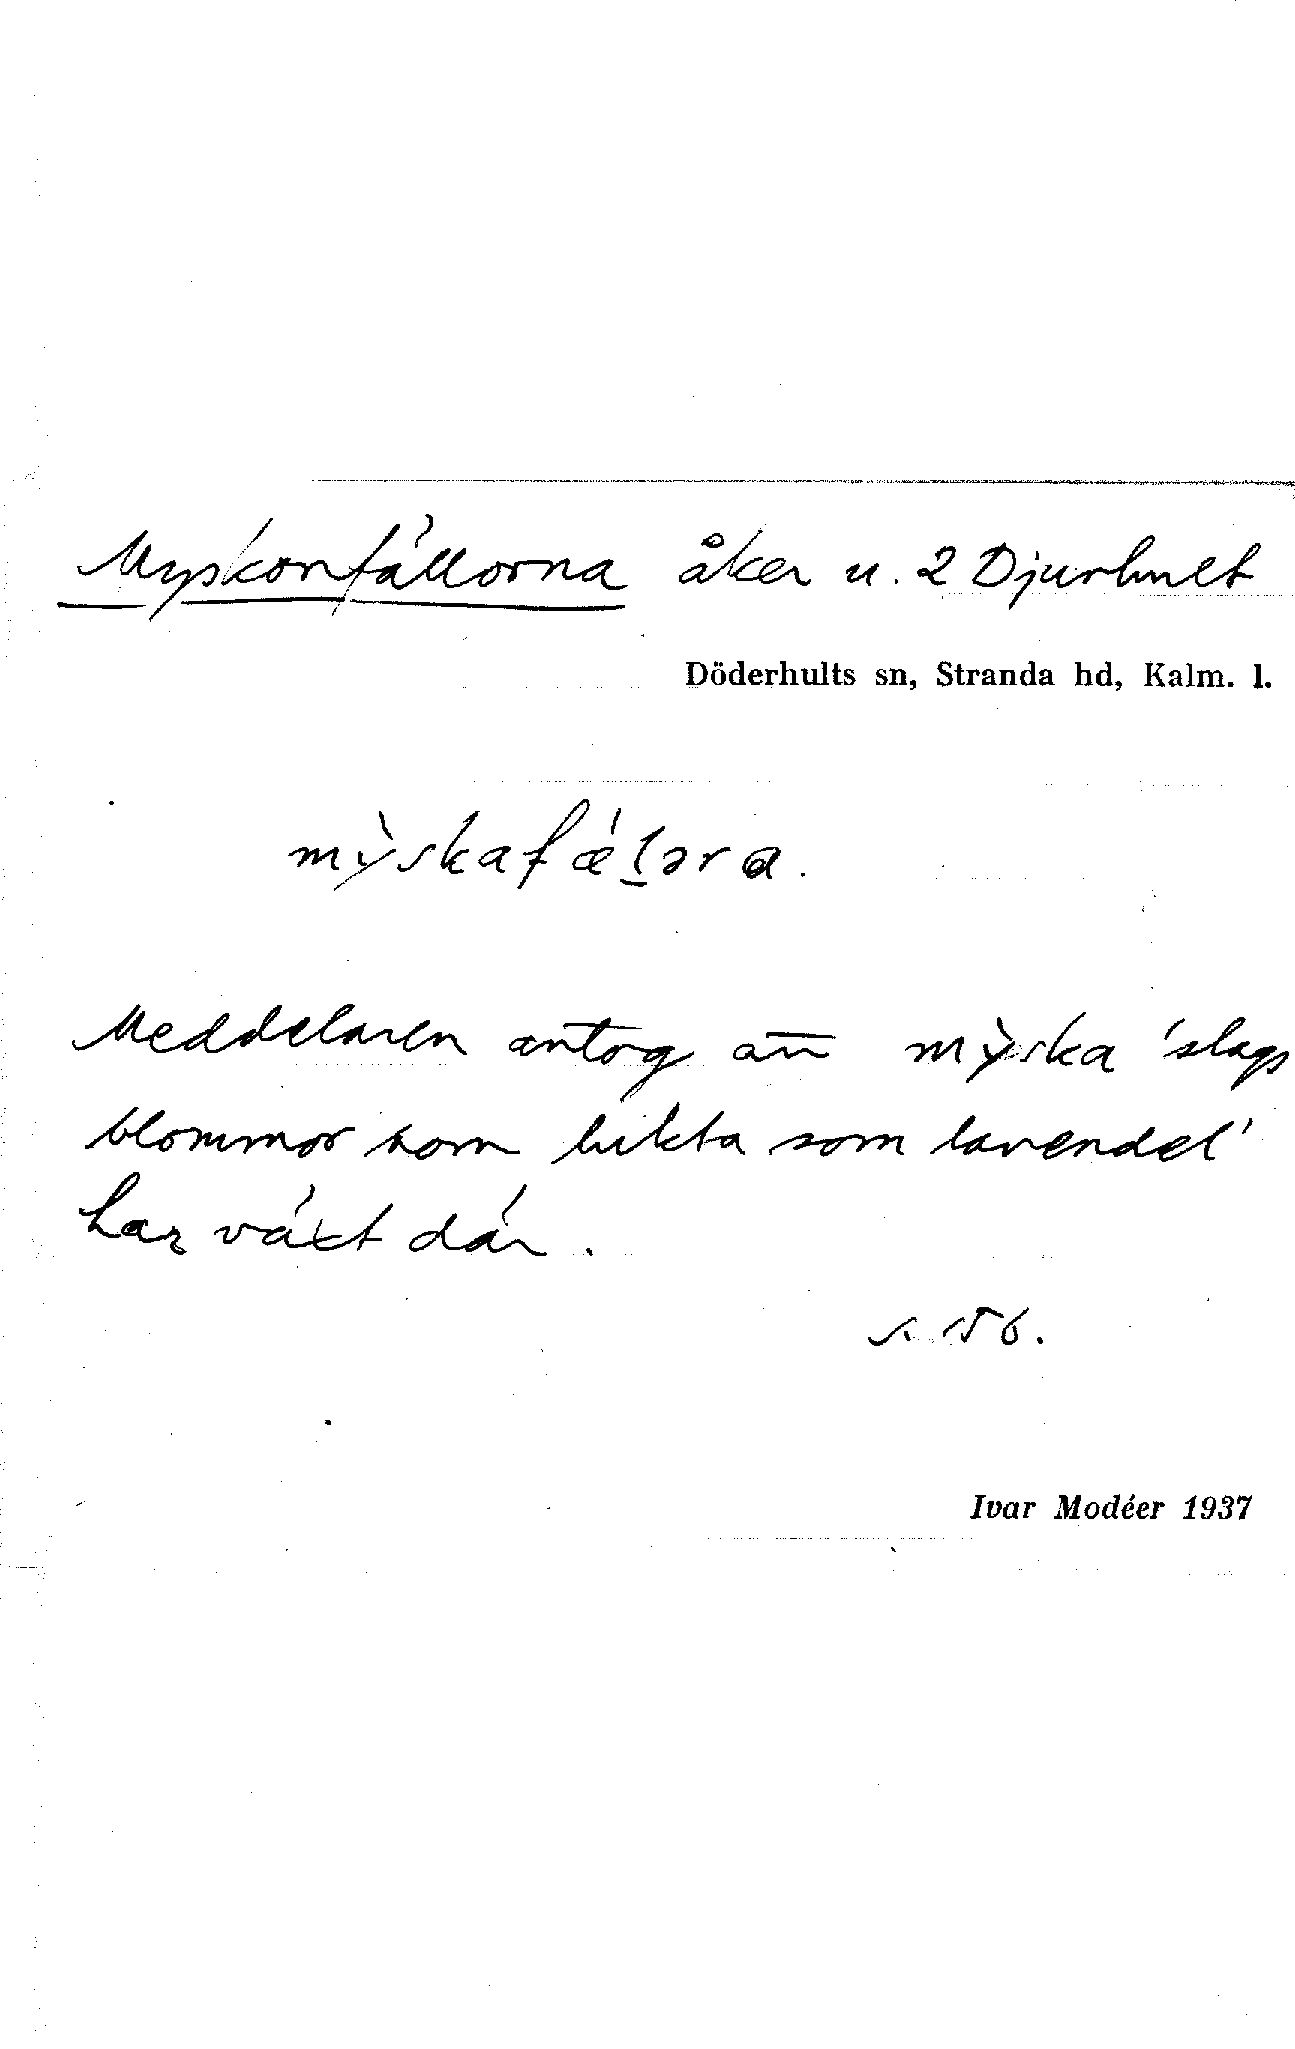 Myskonfällorna åker u. 2 Djurhult
Döderhults sn, Stranda hd, Kalm. l.
mỳskafǽl̠əra.
Meddelaren antog att mỳska 'slags
blommor som lukta som lavendel'
har växt där.
s. 156.
Ivar Modéer 1937